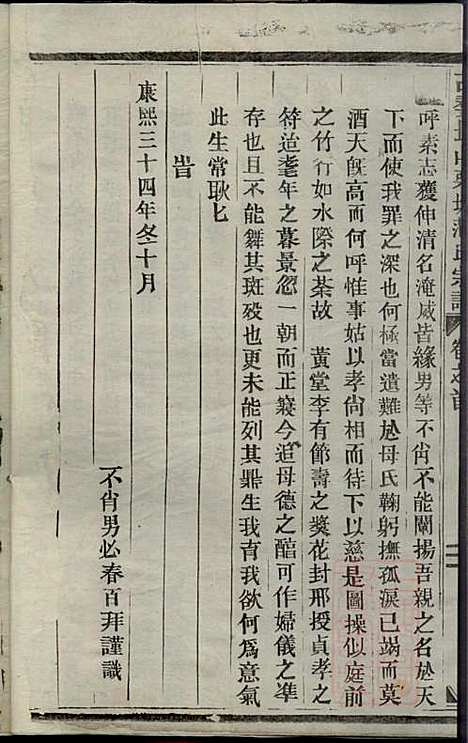 呼素志獲伸清名淹咸皆緣男等不肖不能闡揚吾親之名於天
下而使我罪之深也何極當遺難於母氏鞠躬撫孤淚已竭而莫
洒天旣高而何呼惟事姑以孝尙相而待下以慈是圖操似庭前
之竹行如水際之荼故　黃堂李有節壽之獎花封邢授貞孝之
符迨耄年之暮景忽一朝而正寢今追母德之皓可作婦儀之準
存也且不能舞其斑歿也更未能列其鼎生我育我欲何爲意氣
此生常耿匕
旹
康熙三十四年冬十月
不肖男必春百拜謹識
宗譜
卷之首
二